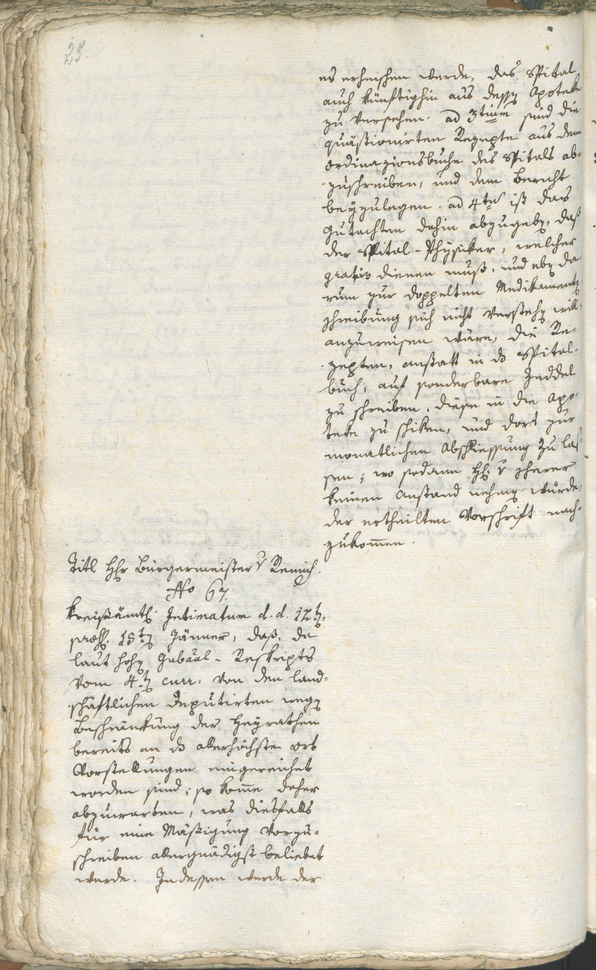 25.
es erheischen werde, das Spital
auch künftighin aus dessen Apoteke
zu versehen. ad 3tium sind die
quästionirten Rezepte aus dem
Ordinazionsbuche des Spitals ab-
zuschreiben, und dem Bericht
beyzulegen. ad 4tum ist das
Gutachten dahin abzugeben, daß
der Spital-Physiker, welcher
gratis dienen muß, und eben da-
rum zur doppelten Medikamenten
schreibung sich nicht verstehen will,
anzuweisen wäre, die Re-
zepten, anstatt in das Spital-
buch, auf sonderbare Zeddel
zu schreiben, diese in die Apo-
teke zu schiken, und dort zur
monatlichen Abschliessung zu las-
sen; wo sodann Hr.
keinen Anstand nehmen würde,
der ertheilten Vorschrift nach-
zukommen.
Titl Hr Bürgermeister v Remich.
No 67.
Kreisämtl. Intimatum d. d. 12ten,
praes. 15ten Jänner, daß, da
laut hohen Gubäal-Reskripts
vom 4ten curr. von den land-
schäftlichen Deputirten wegen
Beschränkung der Heyrathen
bereits an das allerhöchste Ort
Vorstellungen eingereichet
worden sind; so komme daher
abzuwarten, was diesfalls
für eine Mäßigung vorzu-
schreiben allergnädigst beliebet
werde. Indessen werde der